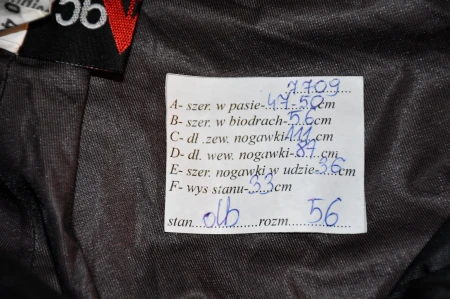 56
7709
A- szer. w pasie-47-50cm
B- szer. w biodrach-56cm
C- dł .zew. nogawki-111cm
D- dł. wew. nogawki-84cm
E- szer. nogawki w udzie-36cm
F- wys stanu-33cm
stan...db...rozm...56